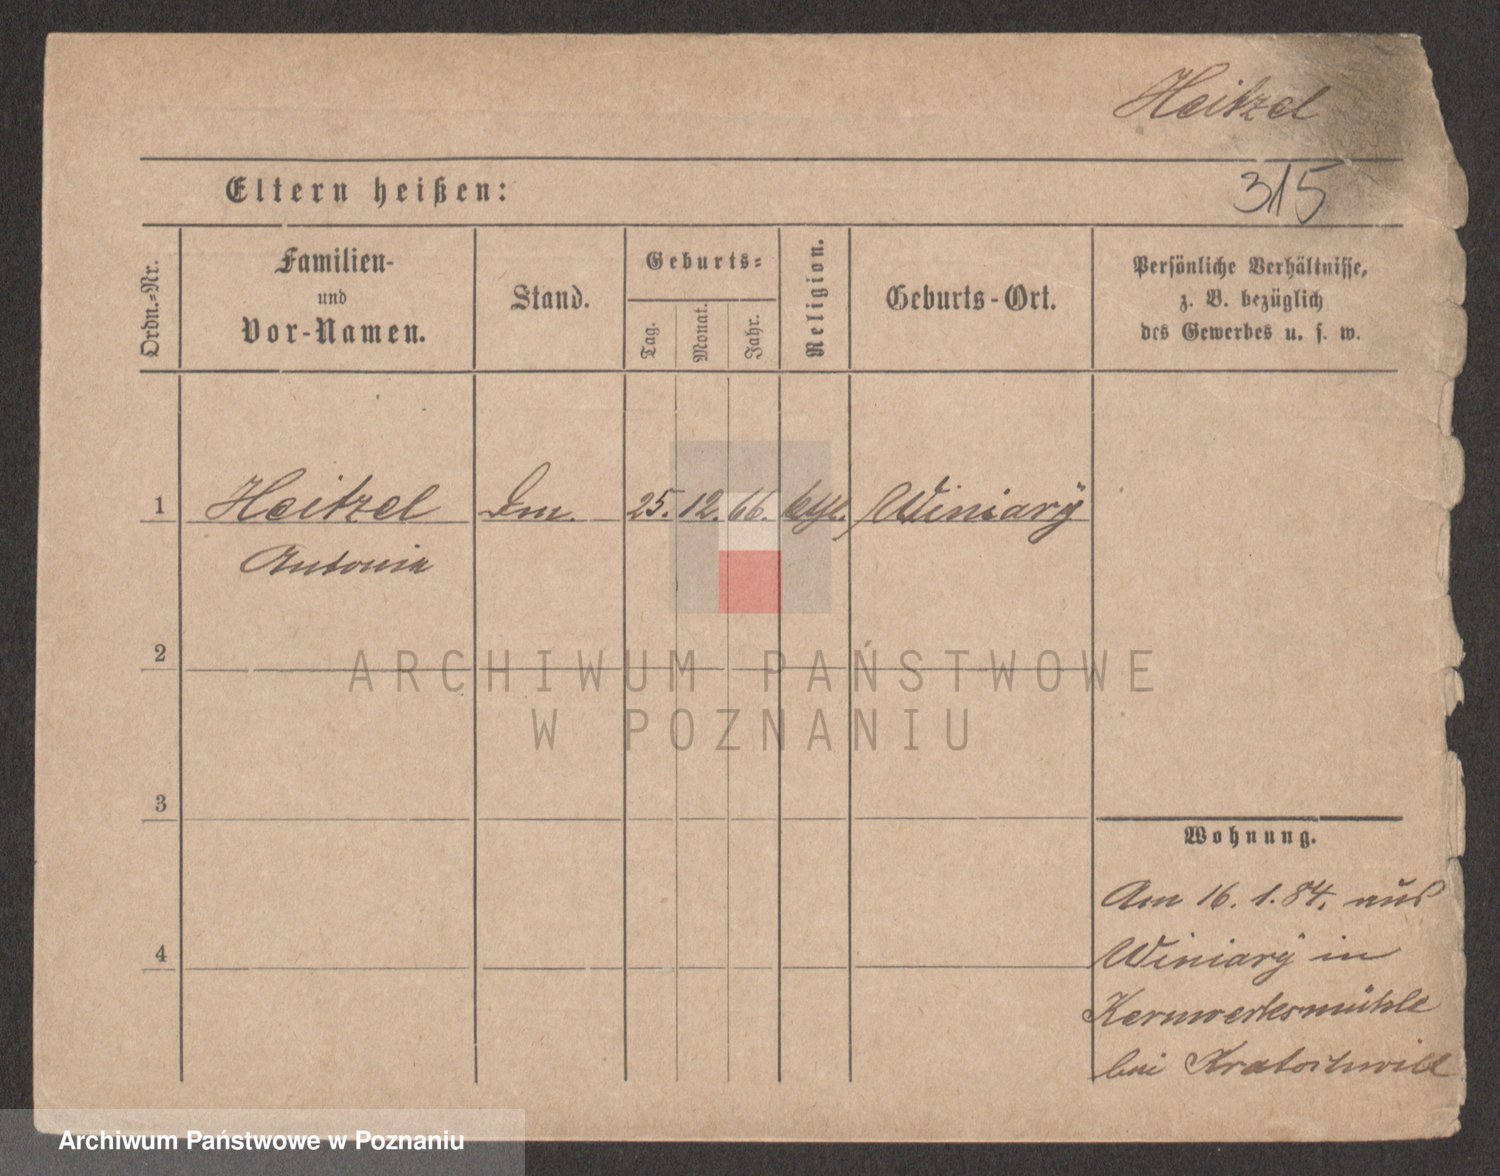 Heitzel
Eltern heißen:
315
Ordn.=Nr.
Familien-
und
Vor-Namen.
Stand.
Geburts=
Tag.
Monat.
Jahr.
Religion.
Geburts-Ort.
Persönliche Verhältnisse,
z. B. bezüglich
des Gewerbes u. s. w.
1 Heitzel Dm. 25. 12. 66. Winiary
Antonia
2
3
4
ARCHIWUM PAŃSTWOWE
W POZNANIU
Wohnung.
Am 16. 1. 84. aus
Winiary in
Kernwerksmühle
bei Kratochwill
Archiwum Państwowe w Poznaniu